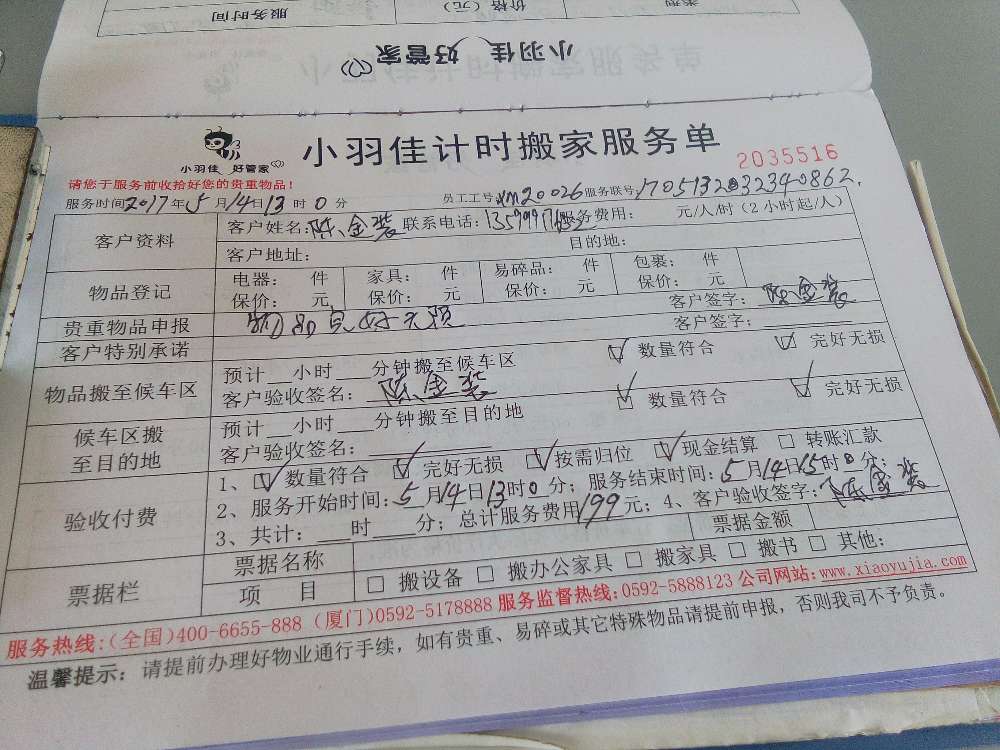 服务时间 价格（元） 类型
小羽佳 好管家
小羽佳 好管家
小羽佳计时搬家服务单
2035516
请您于服务前收拾好您的贵重物品！
服务时间2017年5月14日13时0分 员工工号xm20026服务联号1705132032340862.
客户资料 客户姓名:陈金装 联系电话: 服务费用： 元/人/时（2小时起/人）
客户地址： 目的地：
物品登记 电器： 件 家具： 件 易碎品： 件 包裹： 件
保价： 元 保价： 元 保价： 元 保价： 元
贵重物品申报 物品完好无损 客户签字：陈金装
客户特别承诺 客户签字：
物品搬至候车区 预计__小时___分钟搬至候车区 ☑ 数量符合 ☑ 完好无损
客户验收签名：陈金装
候车区搬至目的地 预计__小时___分钟搬至目的地 ☑ 数量符合 ☑ 完好无损
客户验收签名：
验收付费 1、☑ 数量符合 ☑ 完好无损 ☑ 按需归位 ☑ 现金结算 □ 转账汇款
2、服务开始时间：5月14日13时0分；服务结束时间：5月14日15时0分；
3、共计：___时___分；总计服务费用199元；4、客户验收签字：陈金装
票据栏 票据名称 票据金额
项 目 □ 搬设备 □ 搬办公家具 □ 搬家具 □ 搬书 □ 其他：
服务热线：(全国)400-6655-888 (厦门)0592-5178888 服务监督热线：0592-5888123 公司网站：www.xiaoyujia.com
温馨提示：请提前办理好物业通行手续，如有贵重、易碎或其它特殊物品请提前申报，否则我司不予负责。